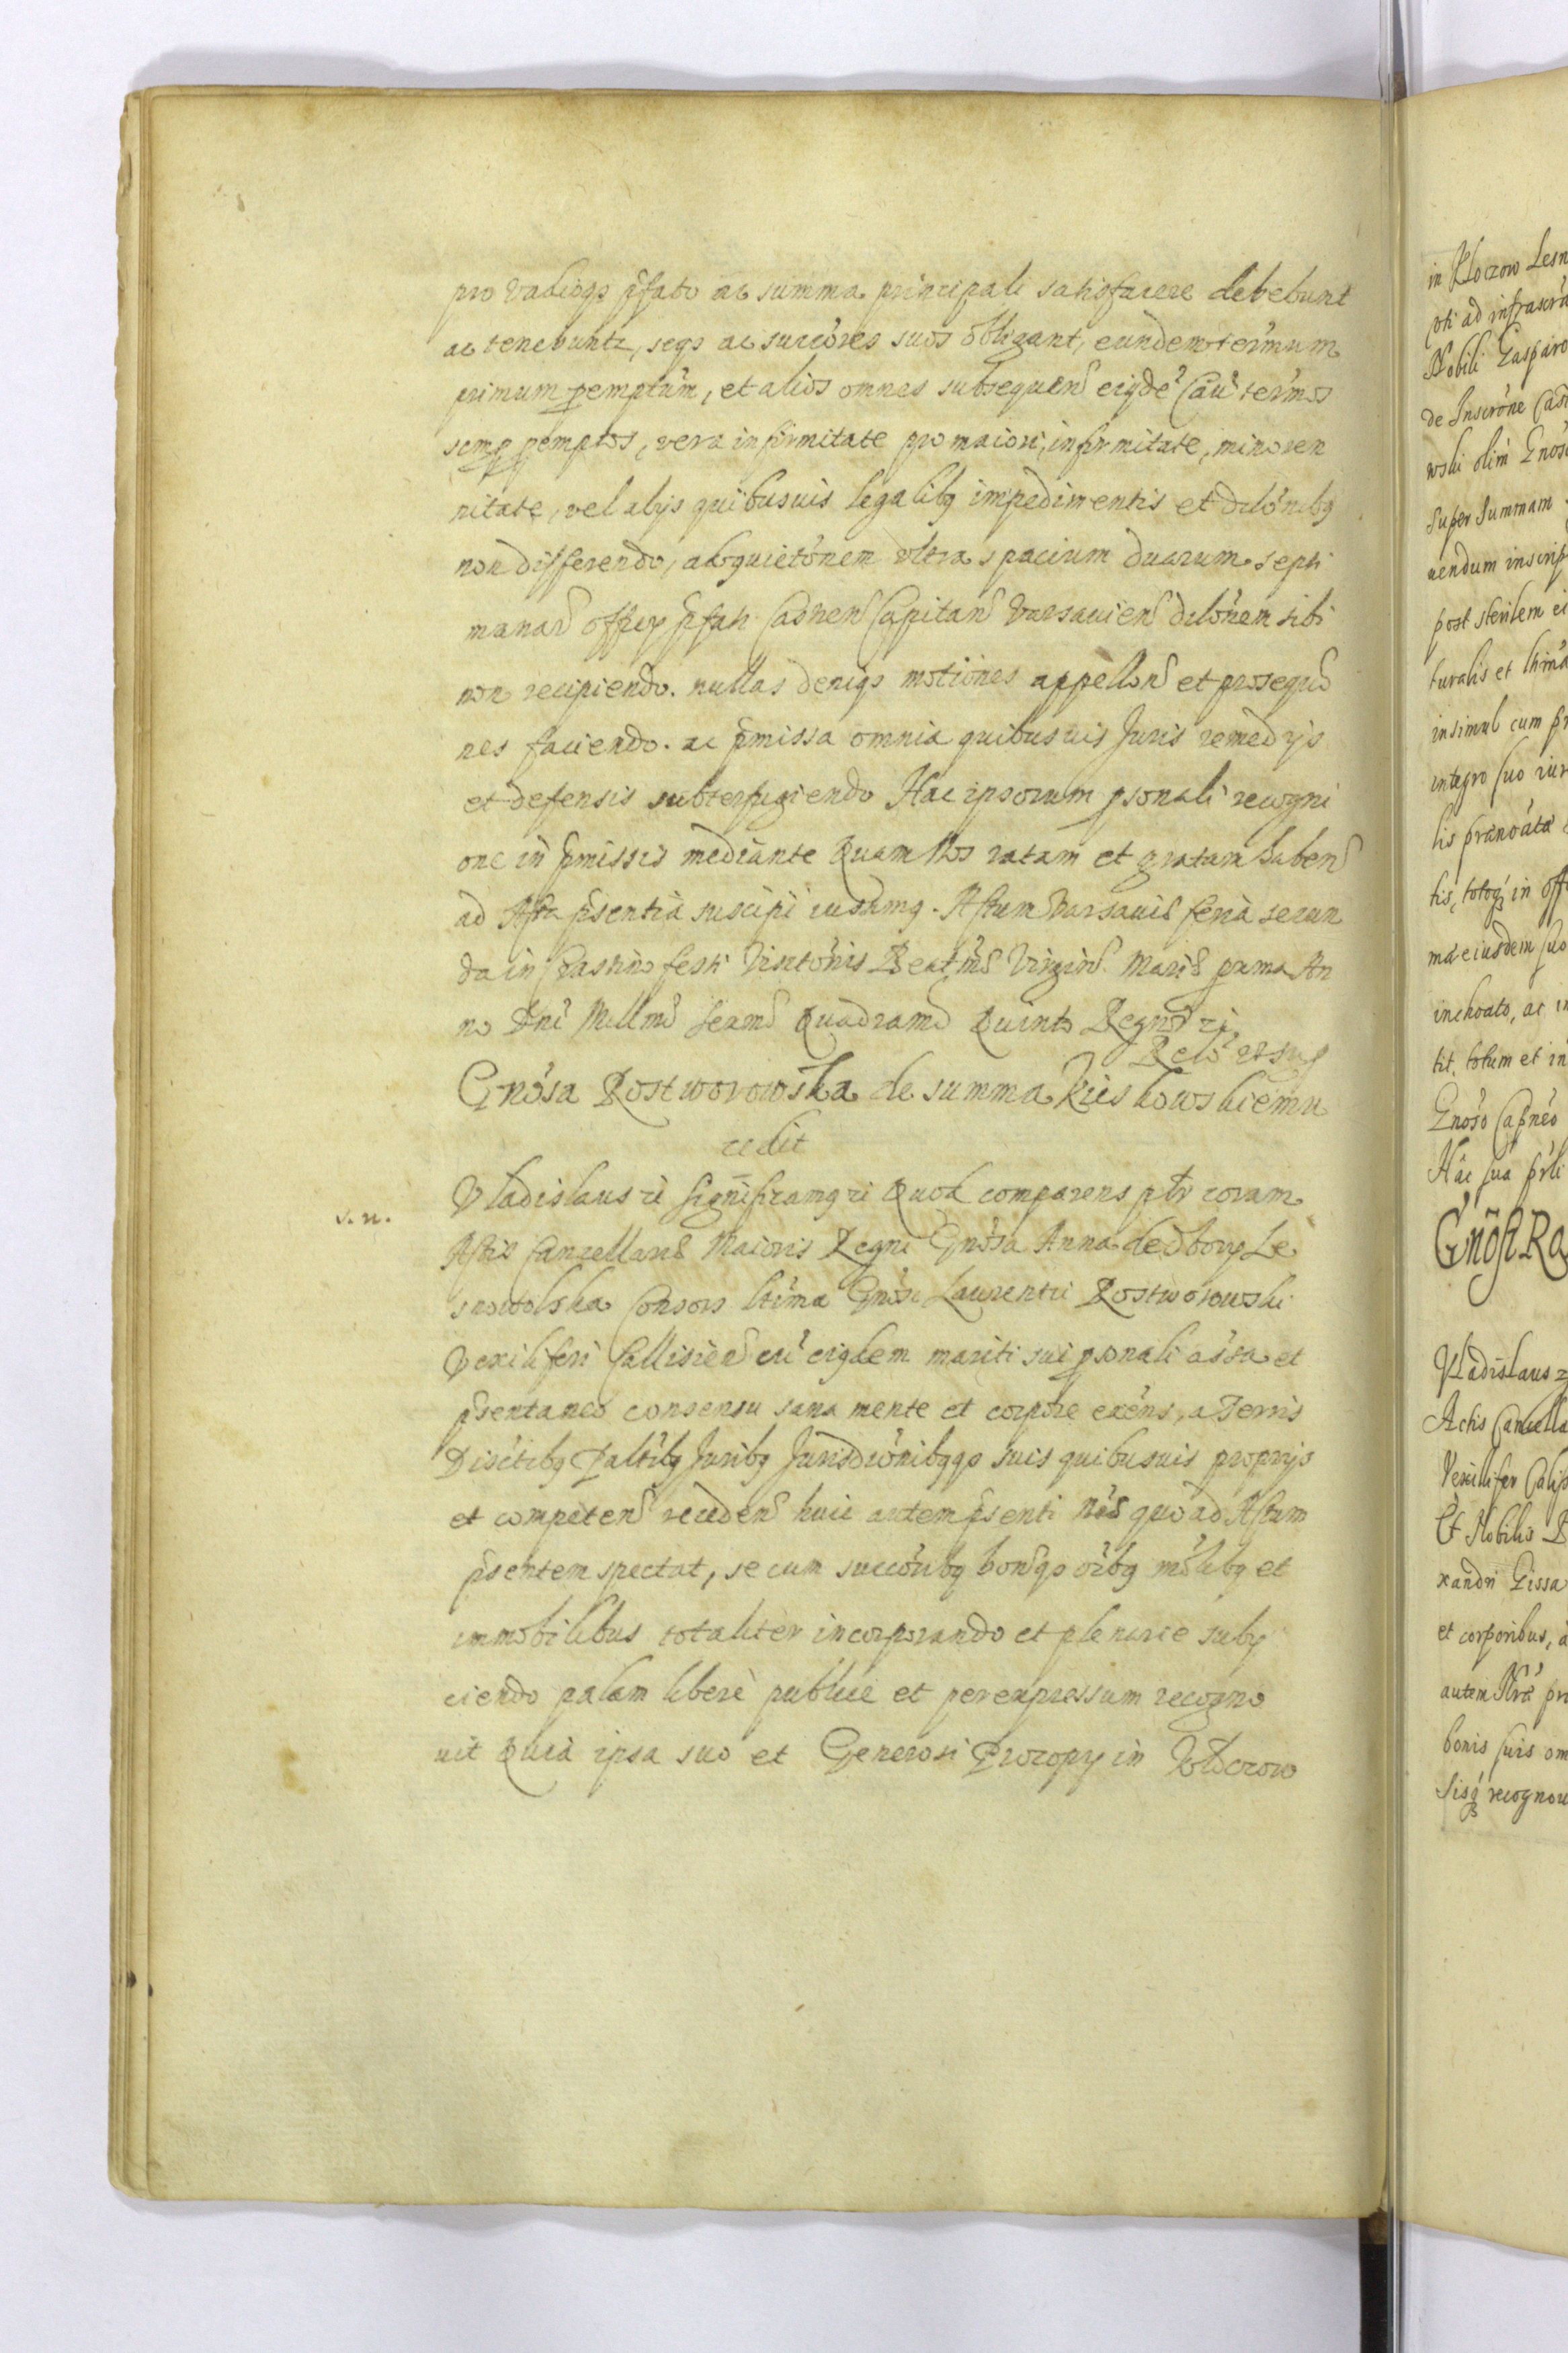 pro vadioqz pfato ac summa principali satisfacere debebunt
ac tenebuntr, seqz ac succores suos obligant, eundem termum
primum pemptum, et alios omnes subsequen eiqde Cau termos
semp pemptos, vera infirmitate pro maiori, infirmitate, minoren
nitate, vel alijs quibusuis legalibq impedimentis et dilonibq
non differendo, ad quietonem vltra spacium duarum septi
manar offici pfati Castren Capitan Varsauien dilonem sibi
non recipiendo. nullas deniqz motiones appellon et prosequo
nes faciendo. ac pmissa omnia quibusuis Juris remedijs
et defensis subterfugiendo Hac ipsorum psonali recogni
one in pmissis mediante Quam Nos ratam et gratam haben
ad Acta psentia suscipi iussimq. Actum Varsauie feria secun
da in Crastino festi Visitonis Beatme Virginis Mariae prima An
no Dni Millmo sexmo Quadramo Quinto Regno zc
Relo et sup
Gnosa Rostworowska de summa Kieskowskiemu
cedit
s. n.
Vladislaus zc Significamq zc Quod comparens pltr coram
Actis Cancellaris Maioris Regni Gnosa Anna de Obory Le
snowolska Consors ltima Gnosi Laurentii Rostworowski
Vexiliferi Callisien cu eiqdem mariti sui psonali assa et
psentaneo consensu sana mente et corpore exens, a Terris
Disctibq Paltibq Juribq Jurisdconibqqz suis quibusuis proprijs
et competen receden huic autem psenti nro quo ad Actum
psentem spectat, se cum succoribq bonsqz oibq mobibq et
immobilibus totaliter incorporando et plenarie subij
ciendo palam libere publice et per expressum recogno
uit Quia ipsa suo et Generosi Procopij in Kloczow

in Kloczow Lesn
oti ad infrascra
Nobili Gasparo
de Inscrone Cas
wski olim Gnosi
super summam
uendum inscrip
post sterilem ei
turalis et
insimul cum pr
integro suo iur
lis pranoata
tis, totoq in off
ma eiusdem suo
inchoato, ac in
tit. totum et in
Gnoso Capneo
Hac sua prli
Gnosi Ra
Vladislaus z
Actis Cancella
Vexillifer Calis
Et Nobilis
xandri Gissa
et corporibus, a
autem Nra pr
bonis suis om
sisq recognou